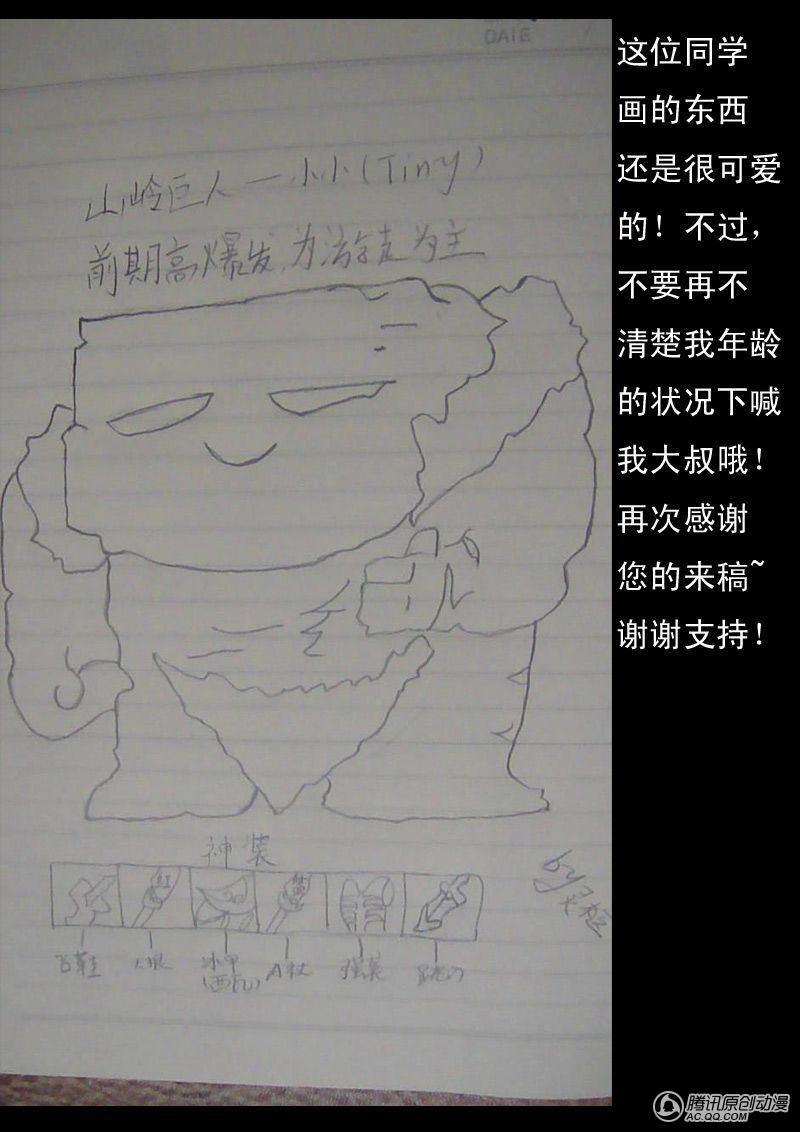 DATE
山岭巨人—小小(Tiny)
前期高爆发,为法师走为主
神装
飞鞋
大根
冰甲
(西瓦)
A杖
强袭
跳刀
by
这位同学
画的东西
还是很可爱
的！不过，
不要再不
清楚我年龄
的状况下喊
我大叔哦！
再次感谢
您的来稿~
谢谢支持！
腾讯原创动漫
AC.QQ.COM